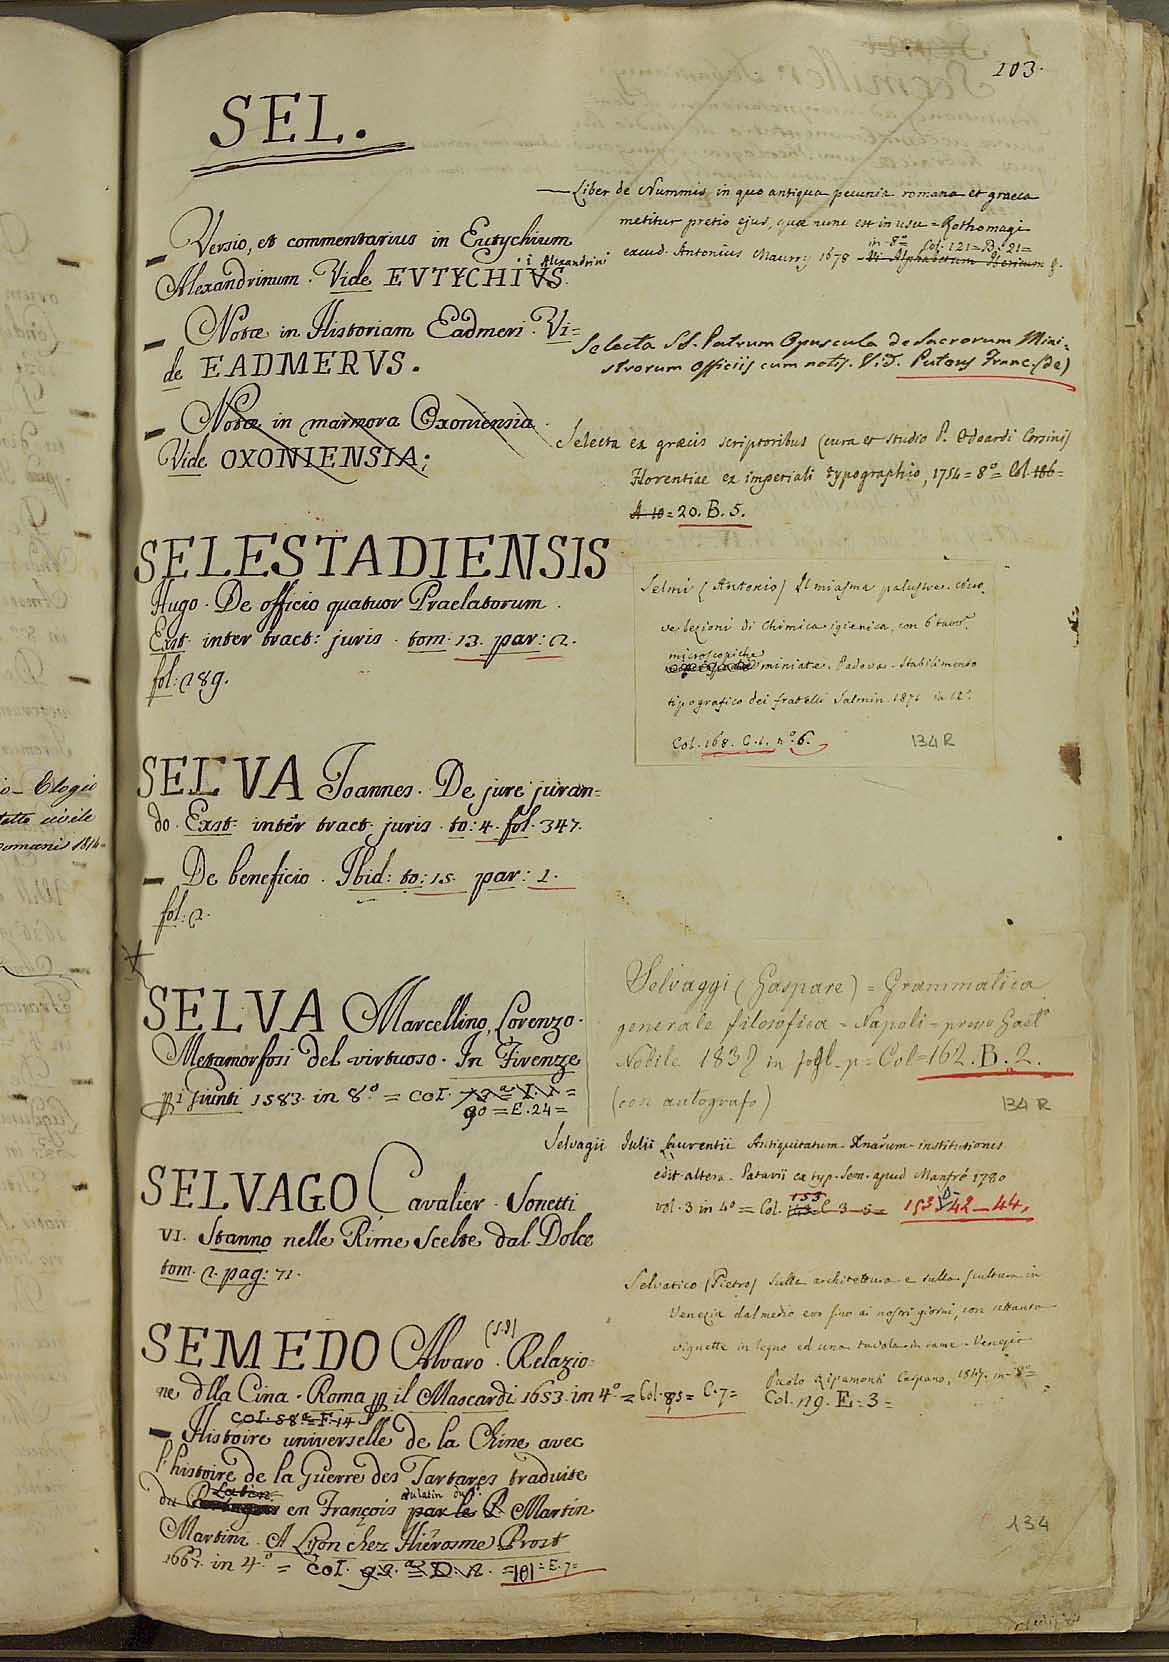 103.
SEL.
— Versio, et commentarius in Eutychium
Alexandrinum. Vide EVTYCHIVS
i Alexandrini
— Notæ in Historiam Eadmeri. Vi=
de EADMERVS.
— Notæ in marmora Oxoniensia
Vide OXONIENSIA;
SELESTADIENSIS
Hugo. De officio quatuor Praelatorum.
Exst. inter tract: juris. tom. 13. par: 2.
fol: 289.
SELVA Joannes. De jure juran=
do. Exst: inter tract. juris. to: 4. fol. 347.
— De beneficio. Ibid: to: 15. par: 1.
fol: 2.
SELVA Marcellino, Lorenzo.
Metamorfosi del virtuoso. In Firenze
pi Giunti 1583. in 8.º = Col.
90 = E. 24 =
SELVAGO Cavalier. Sonetti
VI. Stanno nelle Rime Scelte dal Dolce
tom. 2. pag: 71.
SEMEDO Alvaro. Relazio=
ne dlla Cina. Roma p il Mascardi 1653. in 4.º = Col. 85 = C. 7 =
Col. 58.ª F. 14
— Histoire universelle de la Chine avec
l'histoire de la Guerre des Tartares traduite
Latin dulatin du
du en François par le P. Martin
Martini. A Lyon chez Hiérosme Prost
1667. in 4.º = Col. 92.ª = D. 12. = 101 = E. 7 =
— Liber de Nummis, in quo antiqua pecunia romana et graeca
metitur pretio ejus, quae nunc est in usu = Rothomagi
in - 8.º Col: 121 = B: 21 =
excud. Antonius Maurry 1678
Selecta SS. Patrum Opuscula de Sacrorum Mini-
strorum Officiis cum notis. Vid. Puteus Franc. (de)
Selecta ex græcis scriptoribus (cura et studio P. Odoardi Corsini)
Florentiae ex imperiali typographio, 1754 = 8.º = Col. 186 =
A. 10 = 20. B. 5.
Selmi (Antonio) Il miasma palustre.
ve lezioni di Chimica igienica, con 6 tavo.
microscopiche
miniate. Padova. Stabilimento
tipografico dei fratelli Salmin. 1871 in 12.º
Col. 168. C. 1. nº. 6.
134 R
Selvaggi (Gaspare) = Grammatica
generale filosofica = Napoli = presso Gaet.º
Nobile 1837 in p: Col = 162. B. 2.
(con autografo)
134 R
Selvagii Julii Laurentii Antiquitatum Xnãrum institutiones
edit. altera. Patavii ex typ. Sem. apud Manfrè 1780
vol. 3 in 4º = Col. 153 153 D 42 - 44.
Selvatico (Pietro) Sulla architettura e sulla scultura in
Venezia dal medio evo fino ai nostri giorni, con settanta
vignette in legno ed una tavola in rame. Venezia
Paolo Ripamonti Carpano, 1847. in - 8º =
Col. 119. E = 3 =
134
Elogio
civile
1814